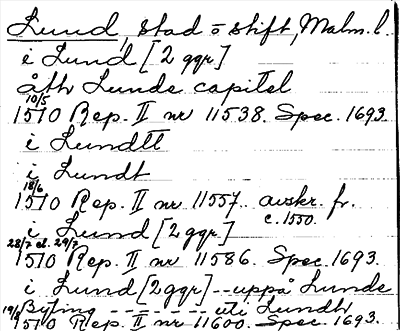 Lund, stad o stift, Malm. l.
i Lund [2 ggr]
åth Lunde capitel
10/5
1510 Rep. II nr 11538. Spec. 1693.
i Lundtt
i Lundt
18/6
1510 Rep. II nr 11557. avskr. fr.
c. 1550.
i Lund [2 ggr]
28/7 el. 29/7
1510 Rep. II nr 11586. Spec. 1693.
i Lund [2 ggr] -- uppå Lunde
Byting - - - - - - - uti Lundh
19/8
1510 Rep. II nr 11600. Spec. 1693.